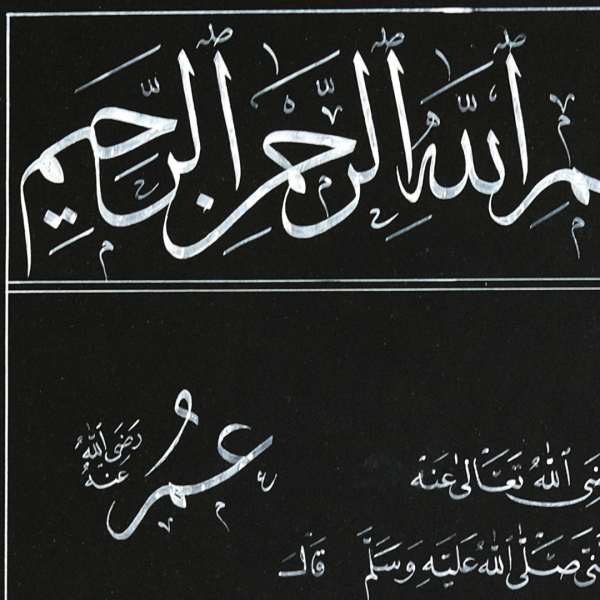 ـم الله الرحمن الرحيم
عُمَر
رَضِيَ اللّٰهُ عَنْهُ
ـضِيَ اللّٰهُ تَعَالٰى عَنْهُ
ـنَّبِيِّ صَلَّى اللّٰهُ عَلَيْهِ وَسَلَّمَ قَالَ